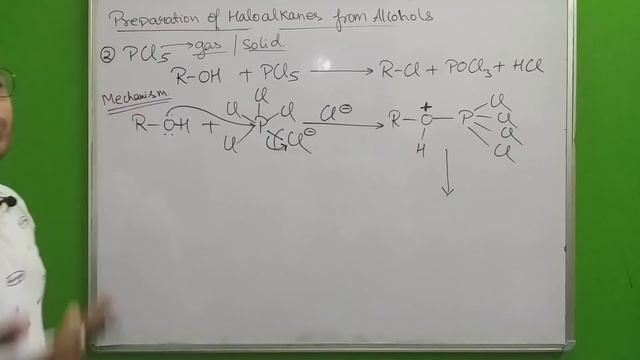 Preparation of Haloalkanes from Alcohols
② PCl5 → gas / Solid
R-OH + PCl5 → R-Cl + POCl3 + HCl
Mechanism
R-ÖH + P Cl Cl Cl Cl Cl⊖ Cl⊖ → R-O⁺-P Cl Cl Cl Cl
H